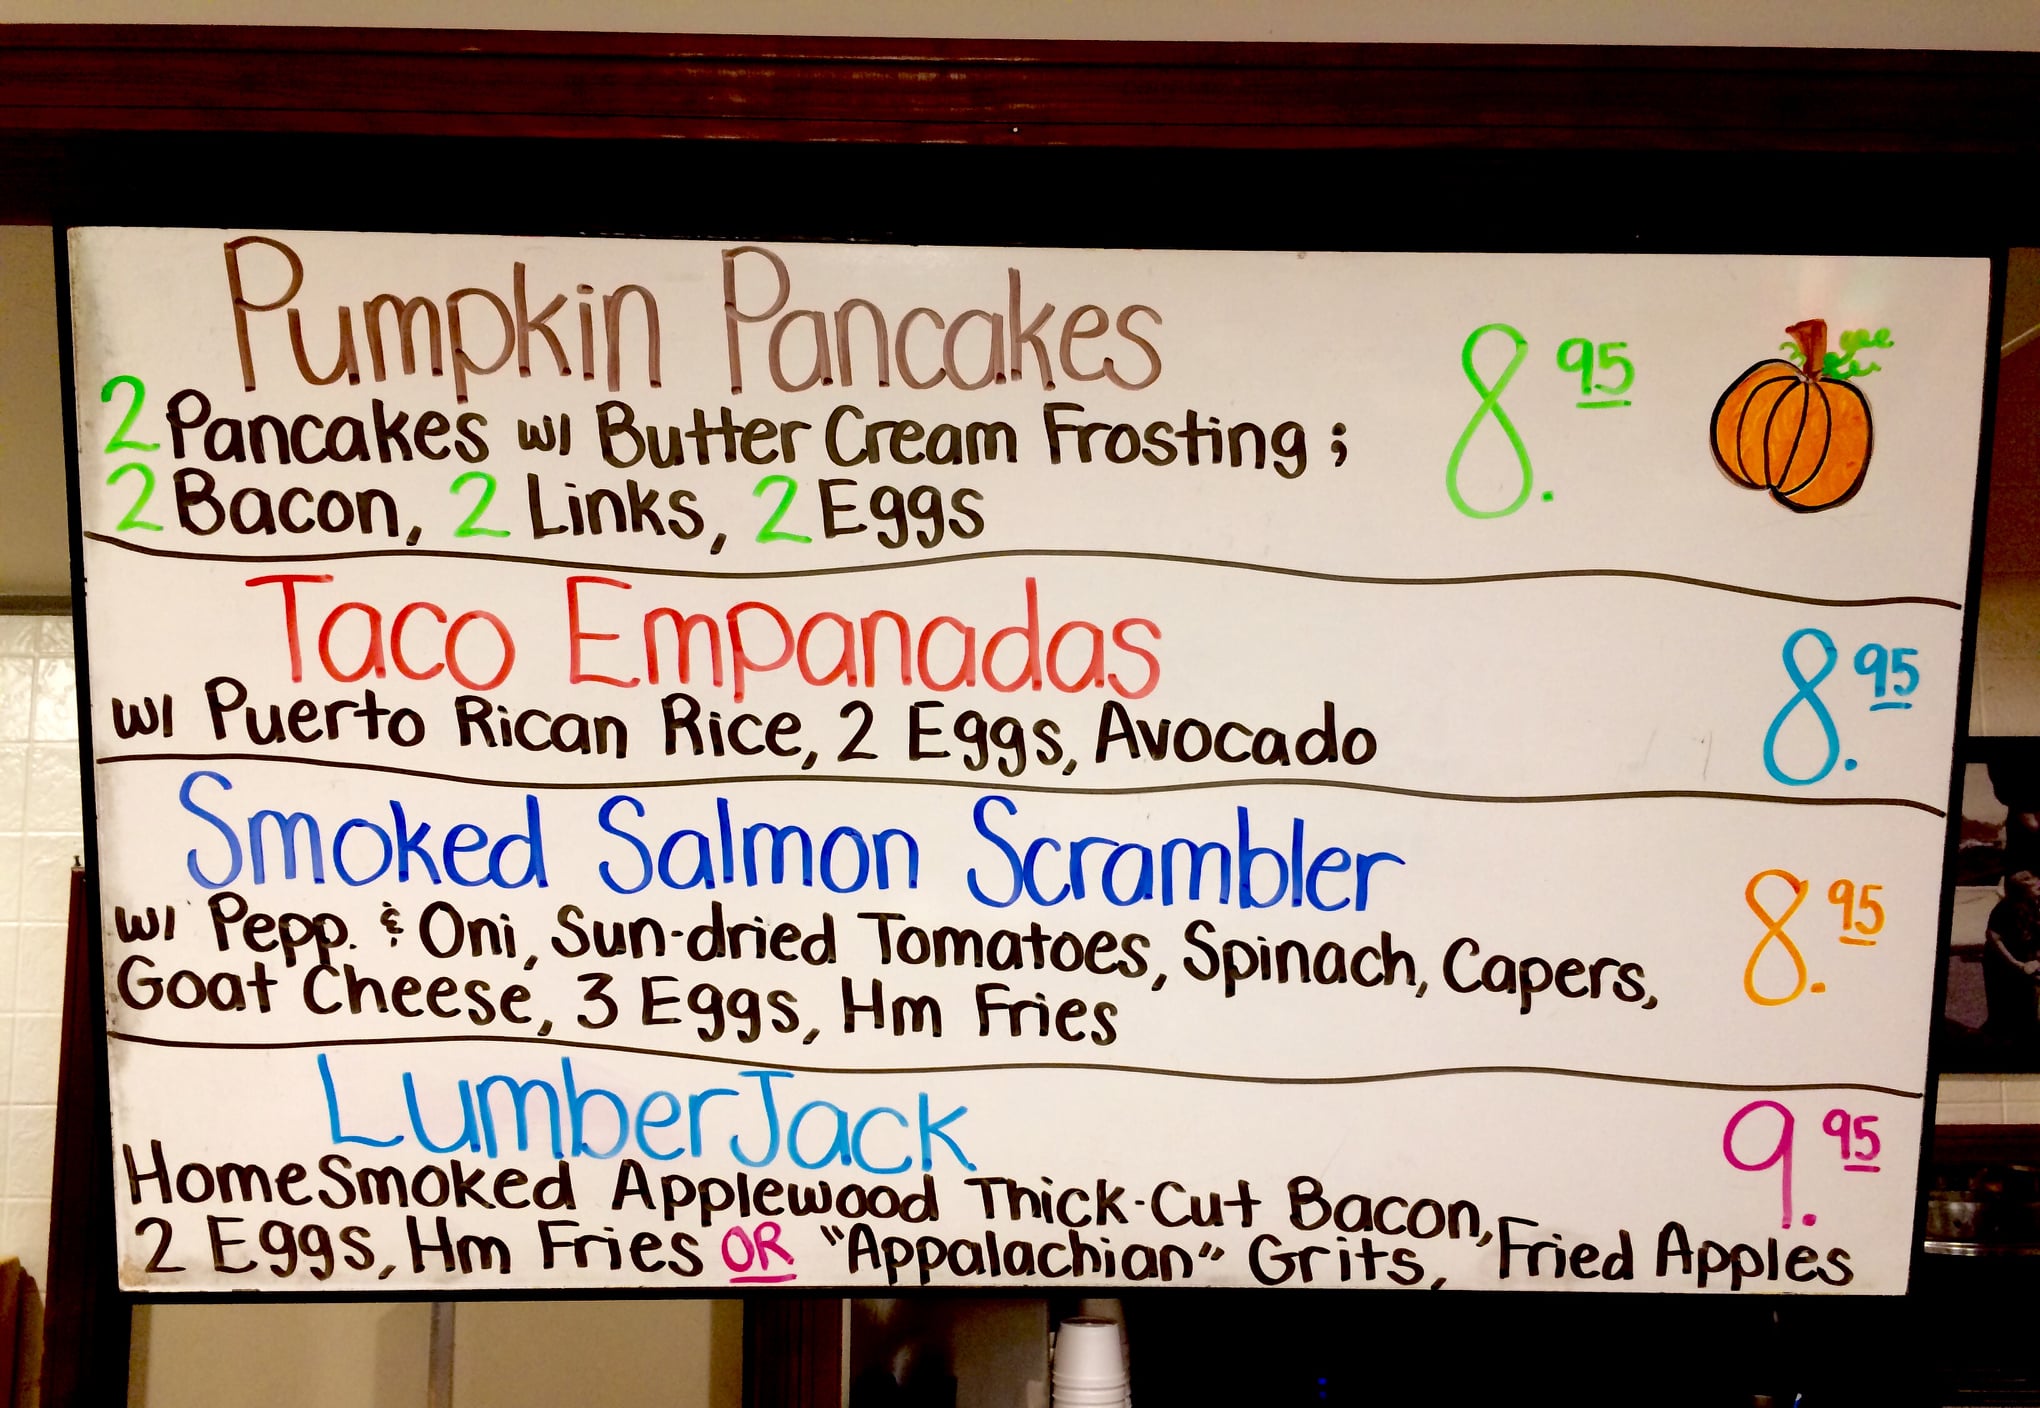 Pumpkin Pancakes
8.95
2 Pancakes w/ Butter Cream Frosting;
2 Bacon, 2 Links, 2 Eggs
Taco Empanadas
8.95
w/ Puerto Rican Rice, 2 Eggs, Avocado
Smoked Salmon Scrambler
8.95
w/ Pepp. & Oni, Sun-dried Tomatoes, Spinach, Capers,
Goat Cheese, 3 Eggs, Hm Fries
LumberJack
9.95
HomeSmoked Applewood Thick-Cut Bacon,
2 Eggs, Hm Fries OR "Appalachian" Grits, Fried Apples